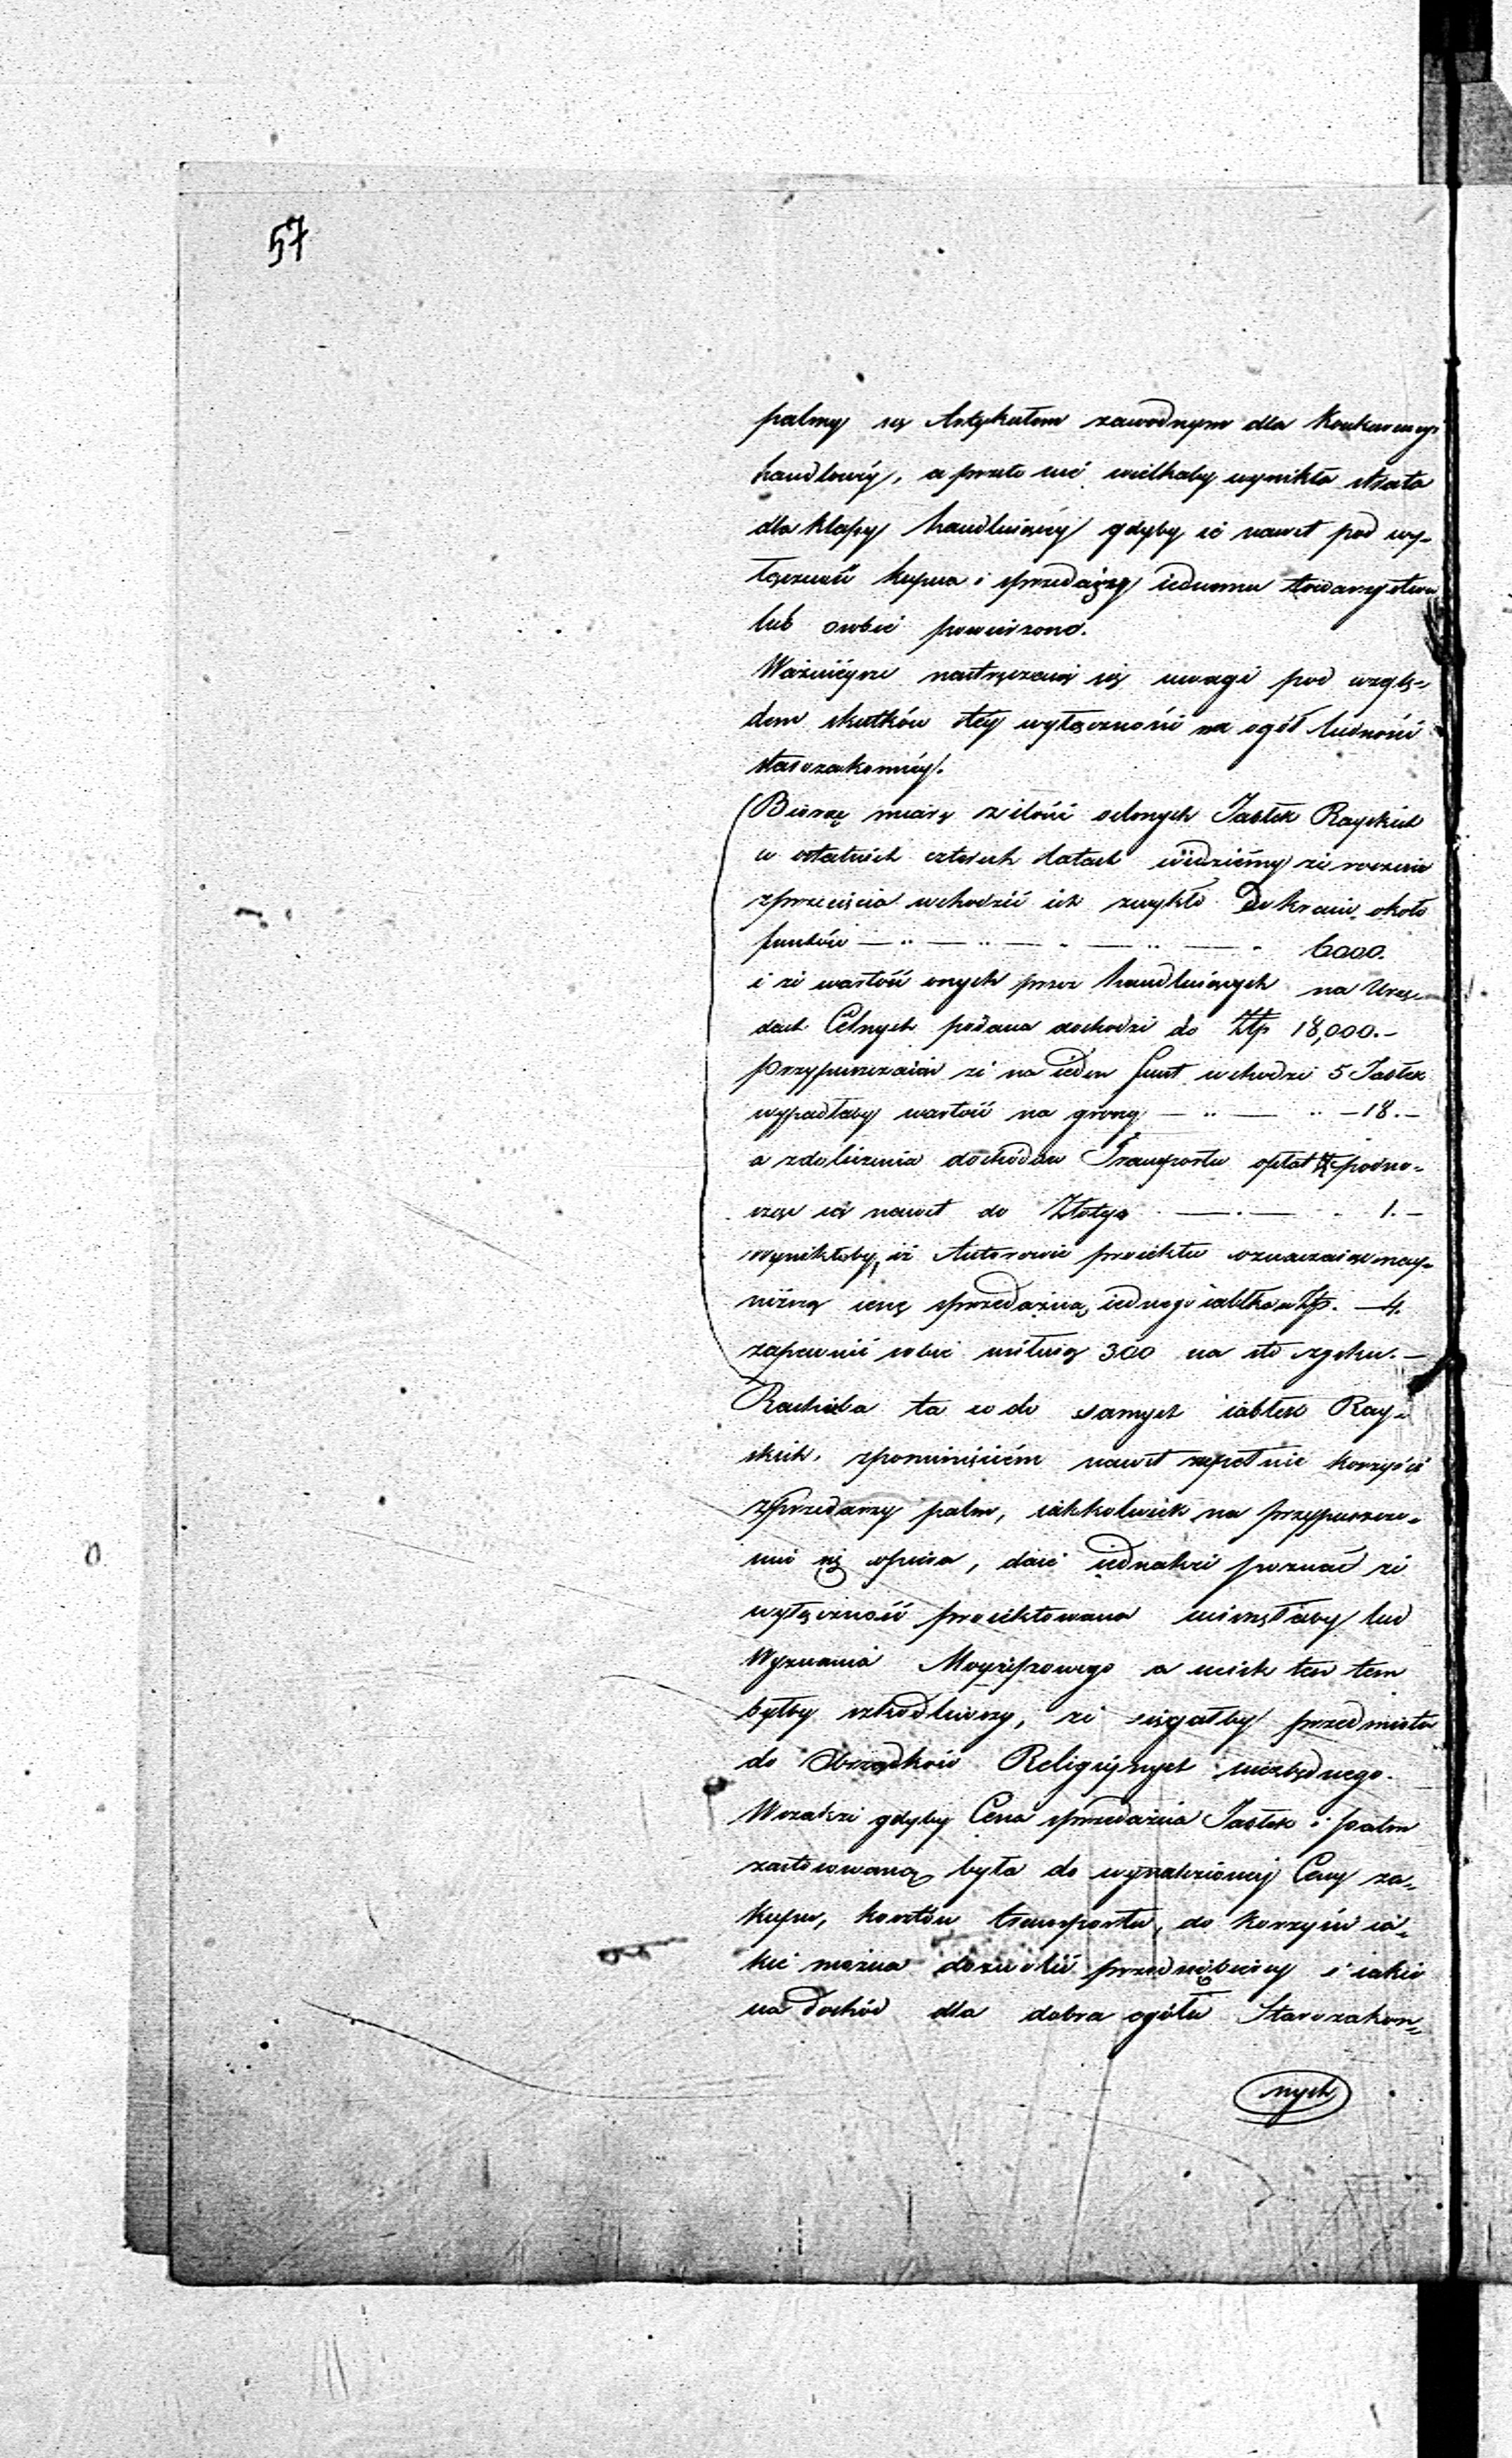 57
palmy są Artykułem zawodnym dla Konkurencyi
handlowéy, a przeto nie wielkaby wynikła strata
dla klassy handluiącéy gdyby ie nawet pod wy-
łączność kupna i sprzedaży iednemu towarzystwu
lub osobie powierzono.
Ważnieysze nastręczaią się uwagi pod wzglę-
dem skutków téy wyłączności na ogół ludności
starozakonnéy.
Biorąc miarę z ilości oclonych Jabłek Rayskich
w ostatnich czterech latach widziemy że rocznie
zprzecięcia wchodzić ich zwykło do kraiu około
funtów — „ — „ — „ — „ — „ 6000.
i że wartość onych przez handluiących na Urzę-
dach Celnych podana dochodzi do Złp 18,000.—
przypuszczaiąc że na ieden funt wchodzi 5 Jabłek
wypadłaby wartość na groszy — „ — „ — 18.—
a z doliczenia dochodów Transportu opłat podno-
sząc ią nawet do Złotego — . — . 1.—
wynikłoby, iż Autorowie proiektu oznaczaiąc nay-
niższą cenę sprzedażną iednego iabłka Złp. — 4.
zapewnić sobie usiłuią 300 na sto zysku.—
Rachuba ta co do samych iabłek Ray-
skich, zpominięciem nawet zupełnie korzyści
zprzedaży palm, iakkolwiek na przypuszcze-
niu się opiera, daie iednakże poznać że
wyłączność proiektowana uciskałaby lud
Wyznania Moyżeszowego a ucisk ten tem
byłby szkodliwszy, że sięgałby przedmiotu
do Obrządków Religiynych niezbędnego.
Wszakże gdyby Cena sprzedażna Jabłek i palm
zastosowaną była do wynalezionéy Ceny za-
kupu, kosztów transportu, do korzyści ia-
kie można dozwolić przedsiębiercy i iakie
na dochód dla dobra ogółu Starozakon-
nych